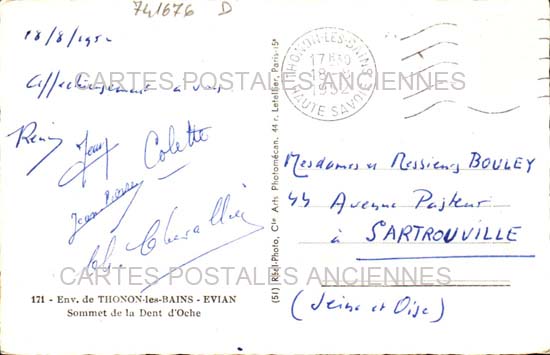 741676 D
18/8/1952
Affectueusement à vous
Rémy
Jean
Colette
Jean Pierre
Ch. Chevallier
171 - Env. de THONON-les-BAINS - EVIAN
Sommet de la Dent d'Oche
(51) Réel-Photo, Cie Arts Photomécan. 44 r. Letellier, Paris-15e
THONON-LES-BAINS
17H30
18-8
1952
HAUTE SAVOIE
Mesdames et Messieurs BOULEY
44 Avenue Pasteur
à SARTROUVILLE
(Seine et Oise)
CARTES POSTALES ANCIENNES
CARTES POSTALES ANCIENNES